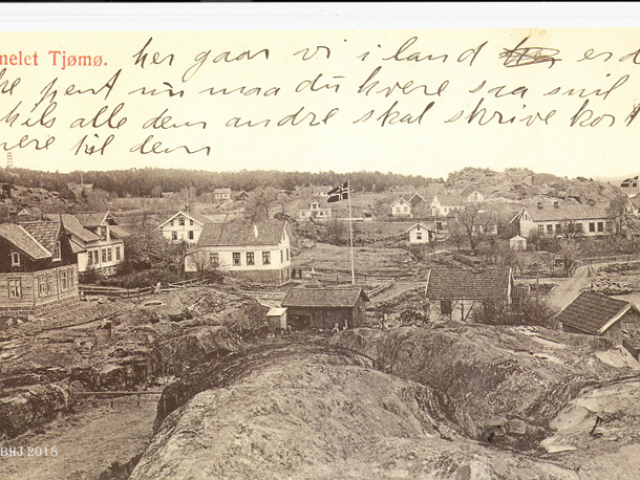 melet Tjømø.
her gaar vi i land er de
pent nu maa du hvere saa snil
hels alle dem andre skal skrive kort
nere til dem
BHJ 2018